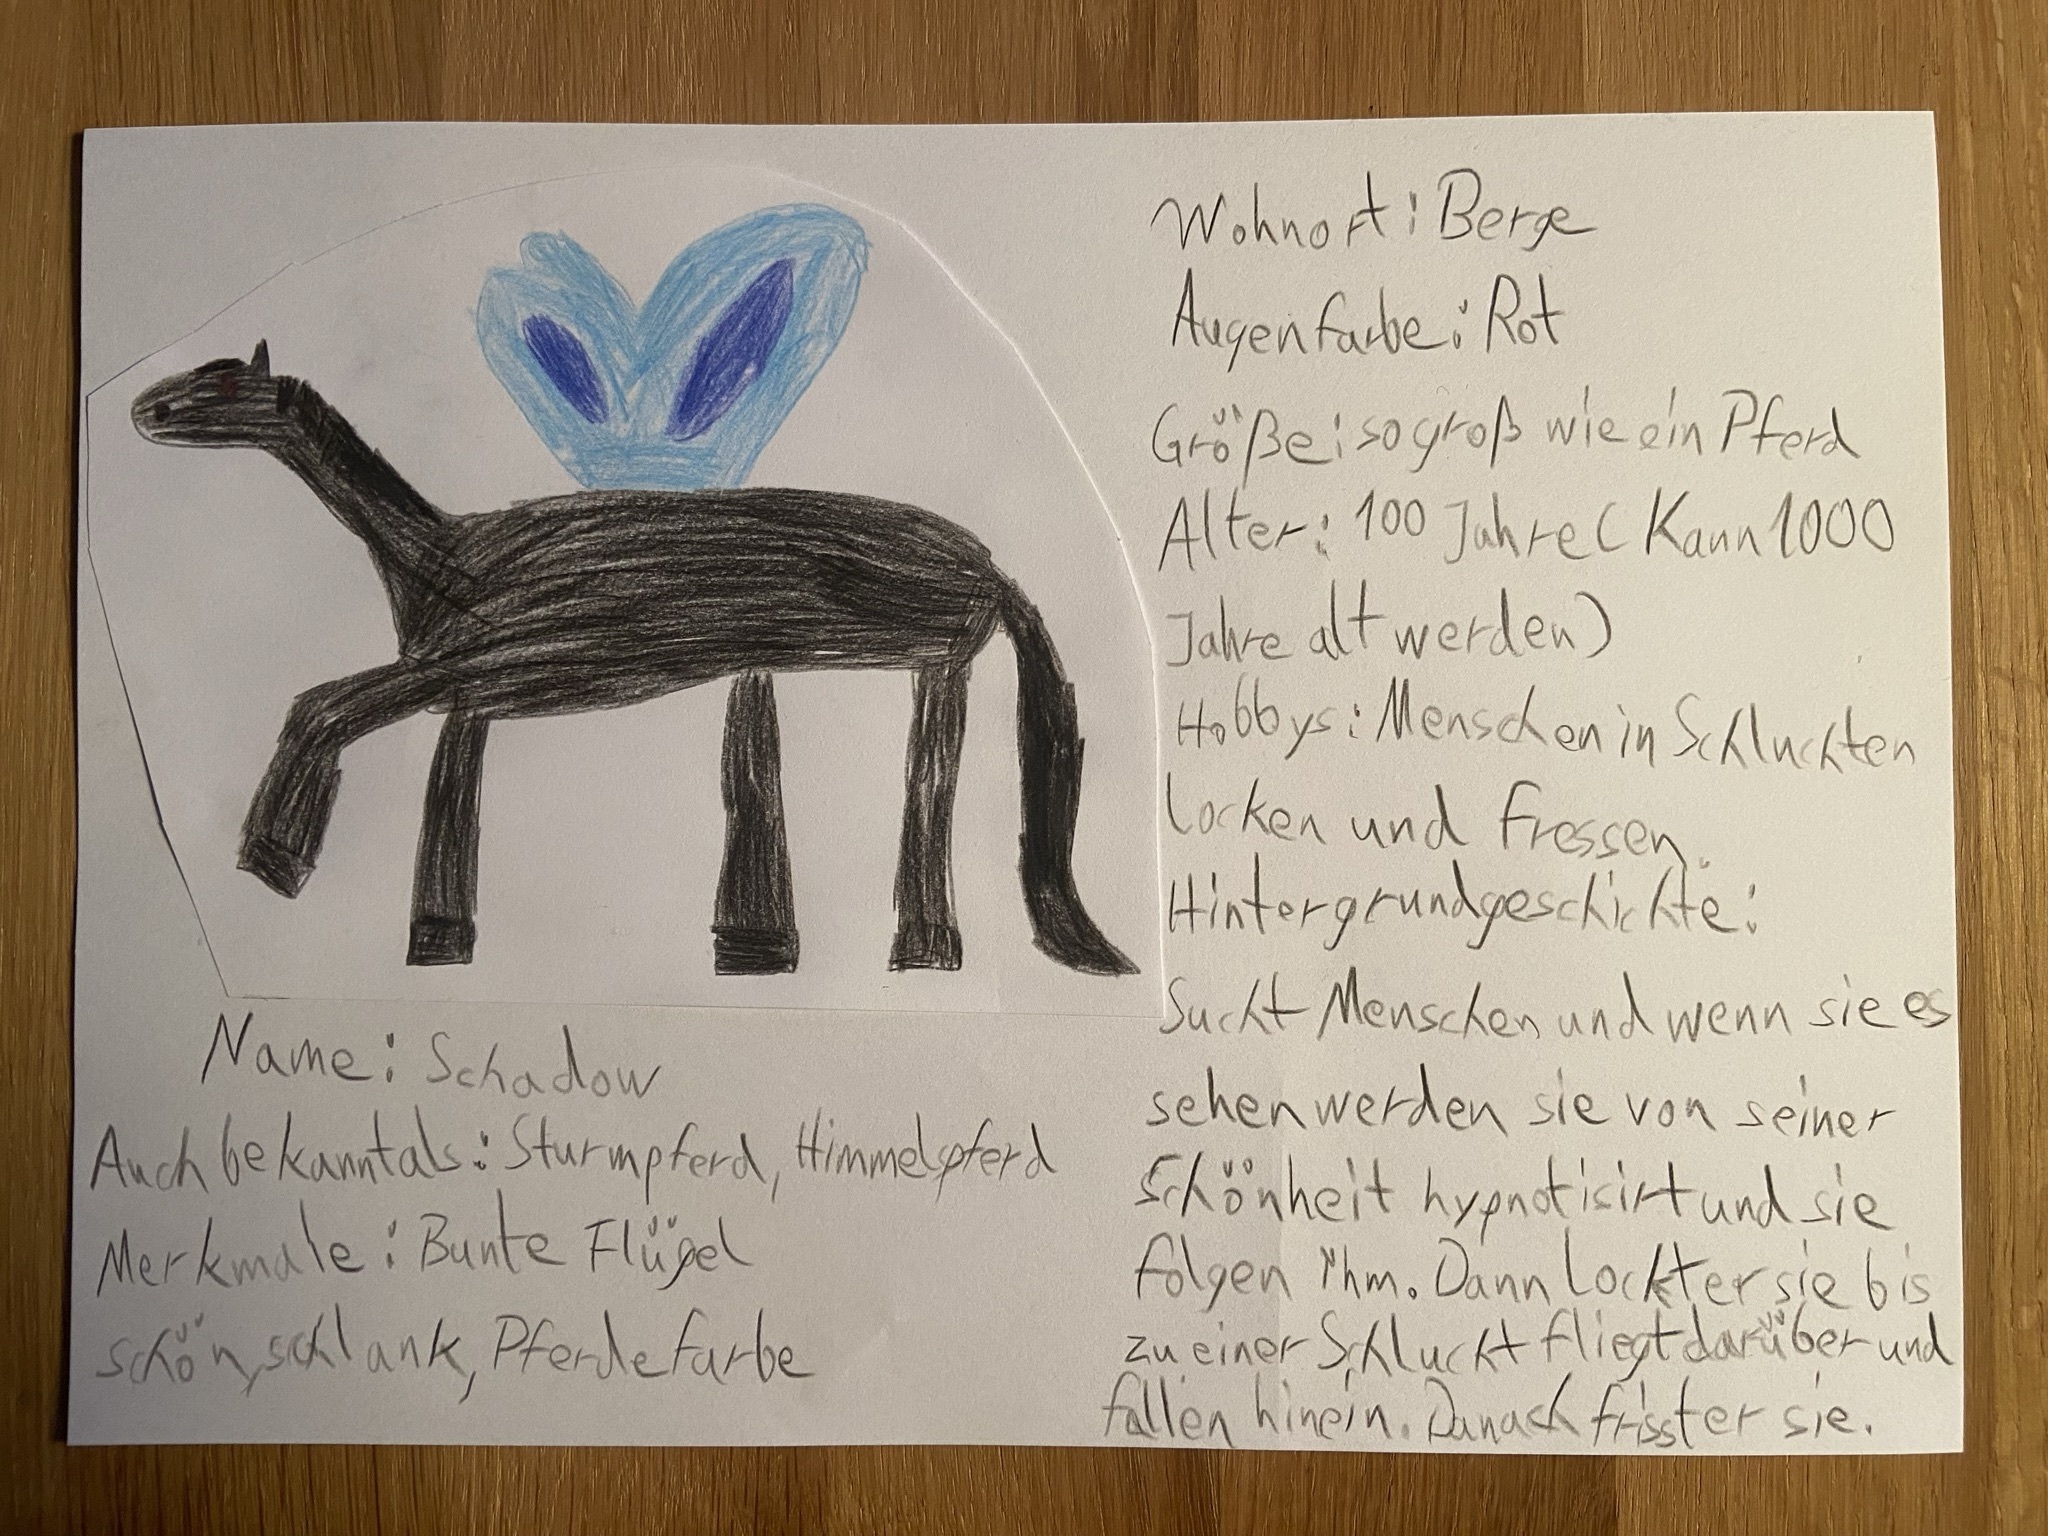 Name: Schadow
Auch bekanntals: Sturmpferd, Himmelspferd
Merkmale: Bunte Flügel
schön, schlank, Pferdefarbe
Wohnort: Berge
Augenfarbe: Rot
Größe: so groß wie ein Pferd
Alter: 100 Jahre (Kann 1000
Jahre alt werden)
Hobbys: Menschen in Schluchten
locken und fressen.
Hintergrundgeschichte:
Sucht Menschen und wenn sie es
sehen werden sie von seiner
Schönheit hypnotisirt und sie
folgen ihm. Dann lockt er sie bis
zu einer Schlucht fliegt darüber und
fallen hinein. Danach frisst er sie.